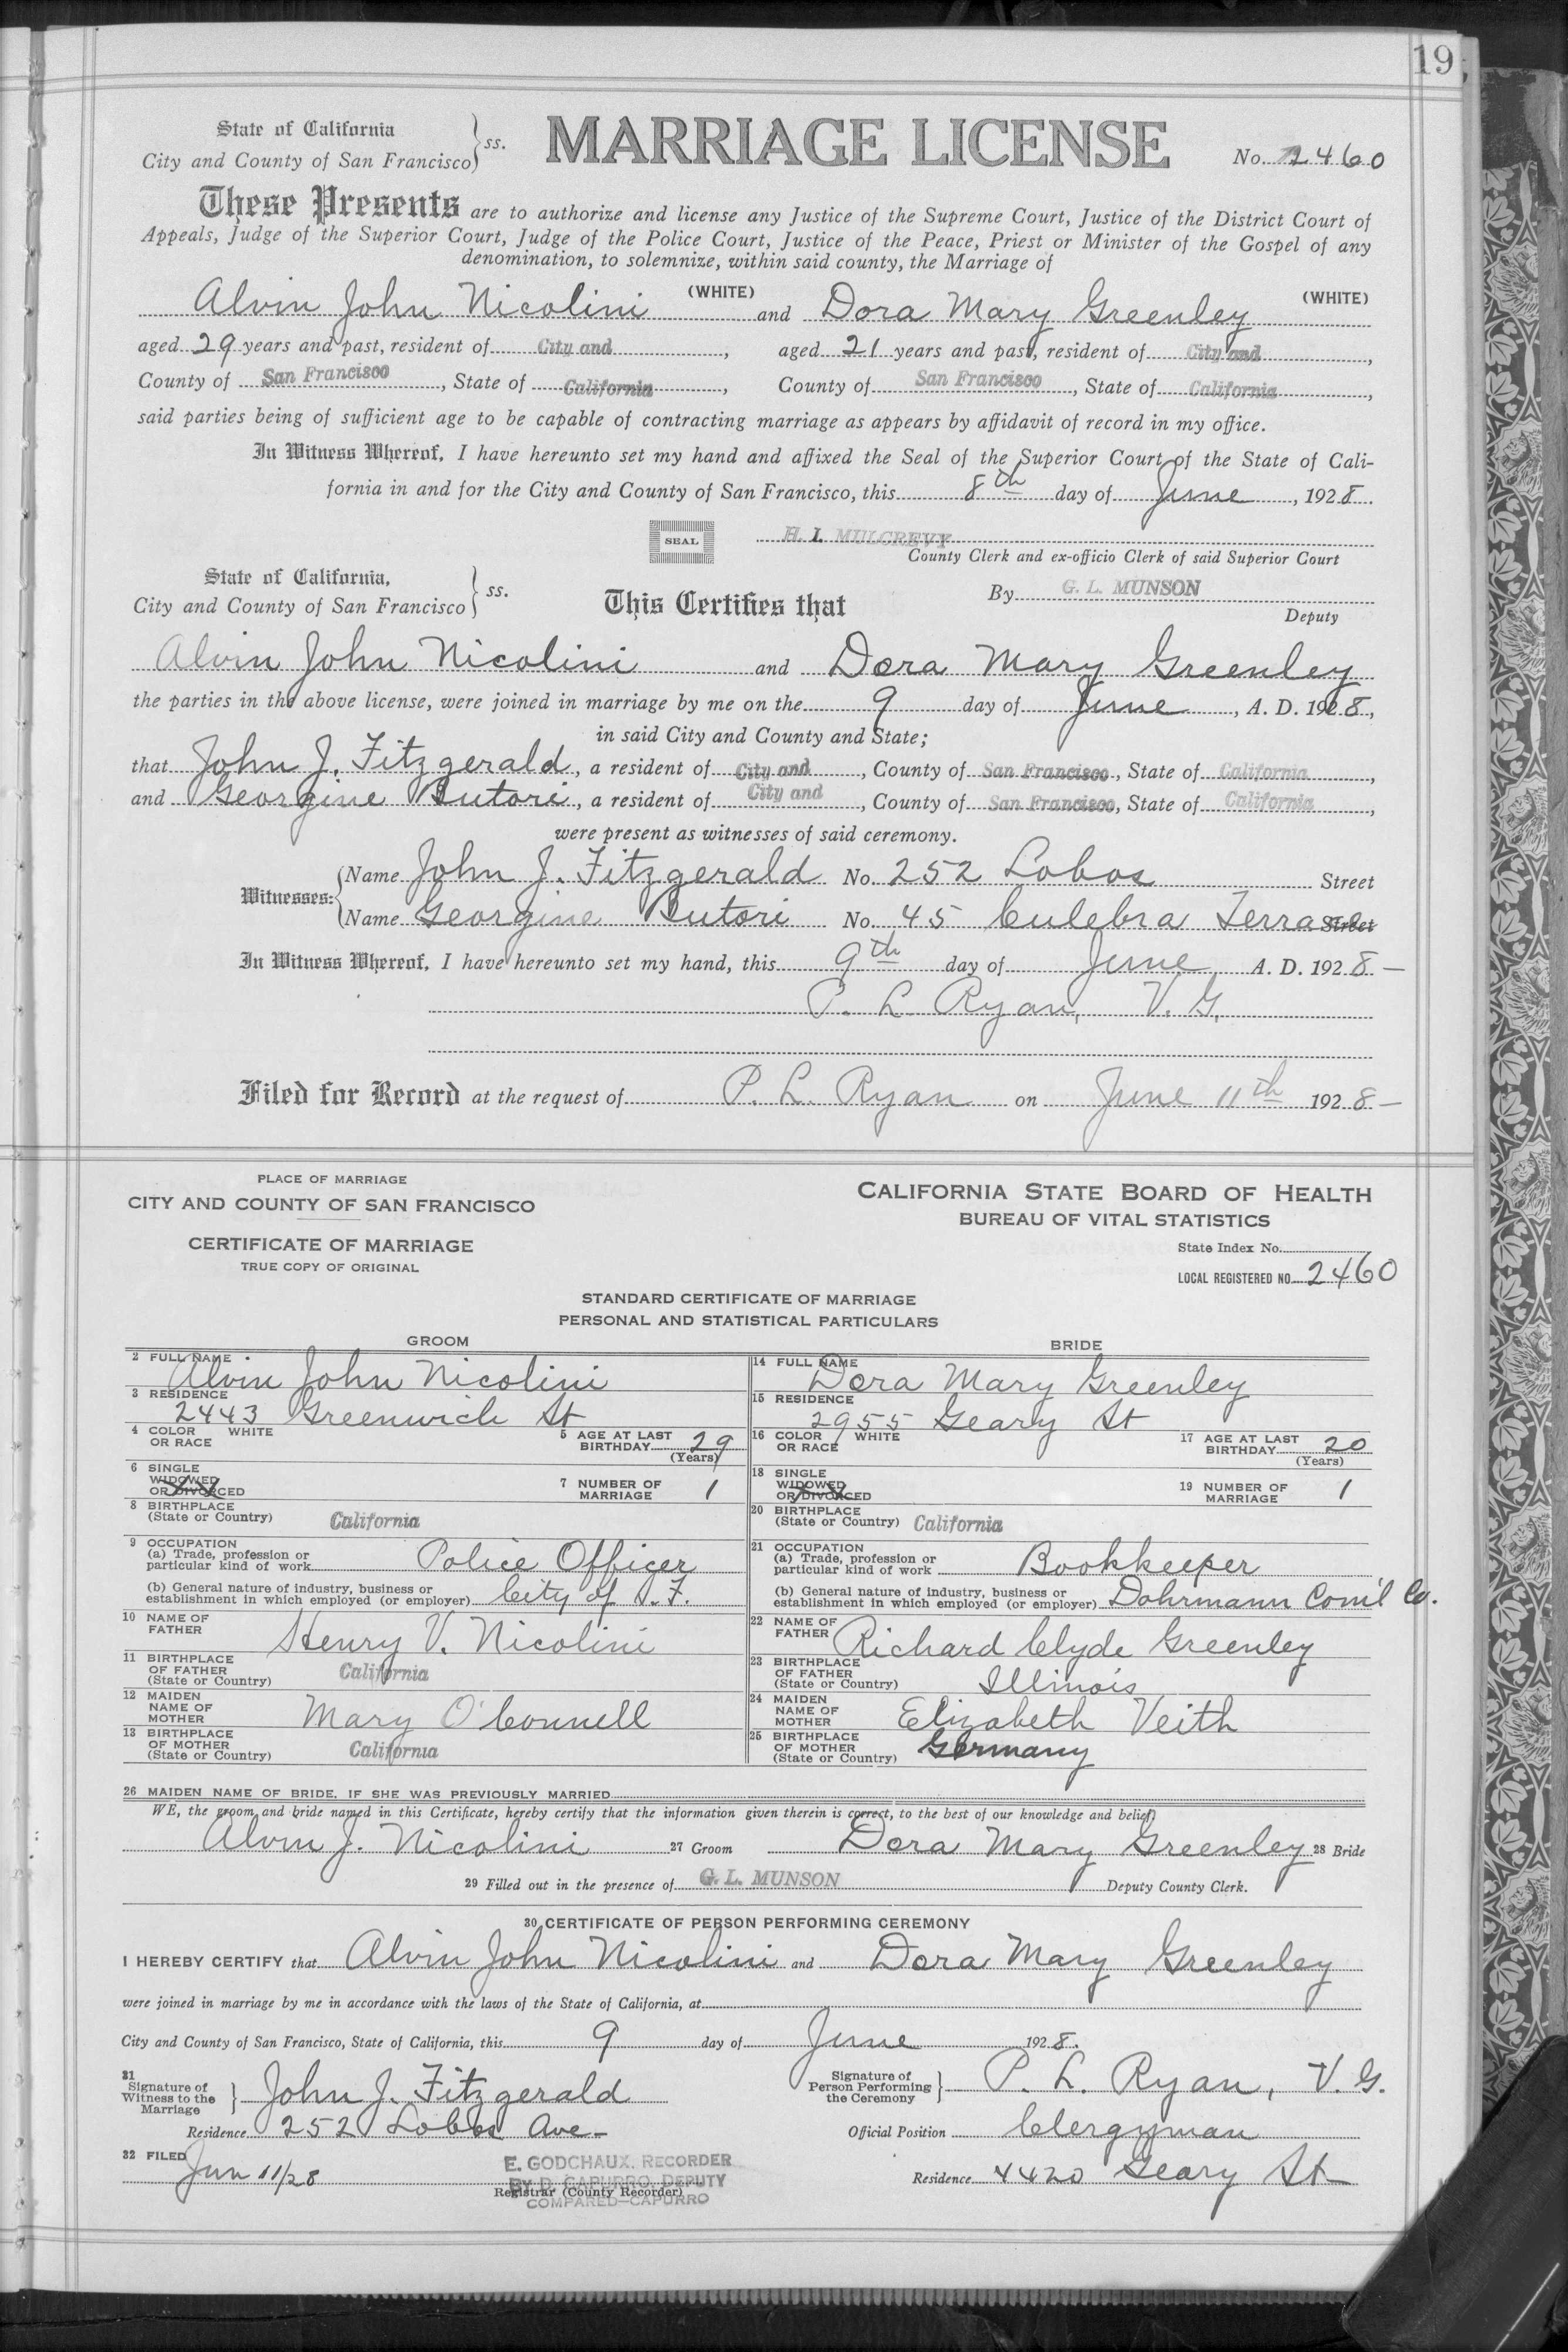 19
State of California
City and County of San Francisco } ss.
MARRIAGE LICENSE
No. 2460
These Presents are to authorize and license any Justice of the Supreme Court, Justice of the District Court of
Appeals, Judge of the Superior Court, Judge of the Police Court, Justice of the Peace, Priest or Minister of the Gospel of any
denomination, to solemnize, within said county, the Marriage of
Alvin John Nicolini (WHITE) and Dora Mary Greenley (WHITE)
aged 29 years and past, resident of City and, aged 21 years and past, resident of City and,
County of San Francisco, State of California, County of San Francisco, State of California,
said parties being of sufficient age to be capable of contracting marriage as appears by affidavit of record in my office.
In Witness Whereof, I have hereunto set my hand and affixed the Seal of the Superior Court of the State of Cali-
fornia in and for the City and County of San Francisco, this 8th day of June, 1928.
SEAL
H. I. MULCREVY
County Clerk and ex-officio Clerk of said Superior Court
State of California,
City and County of San Francisco } ss.
This Certifies that
By G. L. MUNSON
Deputy
Alvin John Nicolini and Dora Mary Greenley
the parties in the above license, were joined in marriage by me on the 9 day of June, A. D. 1928,
in said City and County and State;
that John J. Fitzgerald, a resident of City and, County of San Francisco, State of California,
and Georgine Butori, a resident of City and, County of San Francisco, State of California,
were present as witnesses of said ceremony.
Witnesses: { Name John J. Fitzgerald No. 252 Lobos Street
Name Georgine Butori No. 45 Culebra Terrace Street
In Witness Whereof, I have hereunto set my hand, this 9th day of June A. D. 1928 —
P. L. Ryan, V. G.
Filed for Record at the request of P. L. Ryan on June 11th 1928 —
PLACE OF MARRIAGE
CITY AND COUNTY OF SAN FRANCISCO
CERTIFICATE OF MARRIAGE
TRUE COPY OF ORIGINAL
CALIFORNIA STATE BOARD OF HEALTH
BUREAU OF VITAL STATISTICS
State Index No.
LOCAL REGISTERED NO. 2460
STANDARD CERTIFICATE OF MARRIAGE
PERSONAL AND STATISTICAL PARTICULARS
GROOM
2 FULL NAME Alvin John Nicolini
3 RESIDENCE 2443 Greenwich St
4 COLOR OR RACE WHITE
5 AGE AT LAST BIRTHDAY 29 (Years)
6 SINGLE WIDOWED OR DIVORCED
7 NUMBER OF MARRIAGE 1
8 BIRTHPLACE (State or Country) California
9 OCCUPATION
(a) Trade, profession or particular kind of work Police Officer
(b) General nature of industry, business or establishment in which employed (or employer) City of S. F.
10 NAME OF FATHER Henry V. Nicolini
11 BIRTHPLACE OF FATHER (State or Country) California
12 MAIDEN NAME OF MOTHER Mary O'Connell
13 BIRTHPLACE OF MOTHER (State or Country) California
BRIDE
14 FULL NAME Dora Mary Greenley
15 RESIDENCE 2955 Geary St
16 COLOR OR RACE WHITE
17 AGE AT LAST BIRTHDAY 20 (Years)
18 SINGLE WIDOWED OR DIVORCED
19 NUMBER OF MARRIAGE 1
20 BIRTHPLACE (State or Country) California
21 OCCUPATION
(a) Trade, profession or particular kind of work Bookkeeper
(b) General nature of industry, business or establishment in which employed (or employer) Dohrmann Com'l Co.
22 NAME OF FATHER Richard Clyde Greenley
23 BIRTHPLACE OF FATHER (State or Country) Illinois
24 MAIDEN NAME OF MOTHER Elizabeth Veith
25 BIRTHPLACE OF MOTHER (State or Country) Germany
26 MAIDEN NAME OF BRIDE, IF SHE WAS PREVIOUSLY MARRIED
WE, the groom and bride named in this Certificate, hereby certify that the information given therein is correct, to the best of our knowledge and belief.
Alvin J. Nicolini 27 Groom Dora Mary Greenley 28 Bride
29 Filled out in the presence of G. L. MUNSON Deputy County Clerk.
30 CERTIFICATE OF PERSON PERFORMING CEREMONY
I HEREBY CERTIFY that Alvin John Nicolini and Dora Mary Greenley
were joined in marriage by me in accordance with the laws of the State of California, at
City and County of San Francisco, State of California, this 9 day of June 1928.
31 Signature of Witness to the Marriage } John J. Fitzgerald
Signature of Person Performing the Ceremony } P. L. Ryan, V. G.
Residence 252 Lobos Ave —
Official Position Clergyman
32 FILED Jun 11/28
E. GODCHAUX, RECORDER
BY D. CAPURRO, DEPUTY
Registrar (County Recorder)
COMPARED—CAPURRO
Residence 4420 Geary St